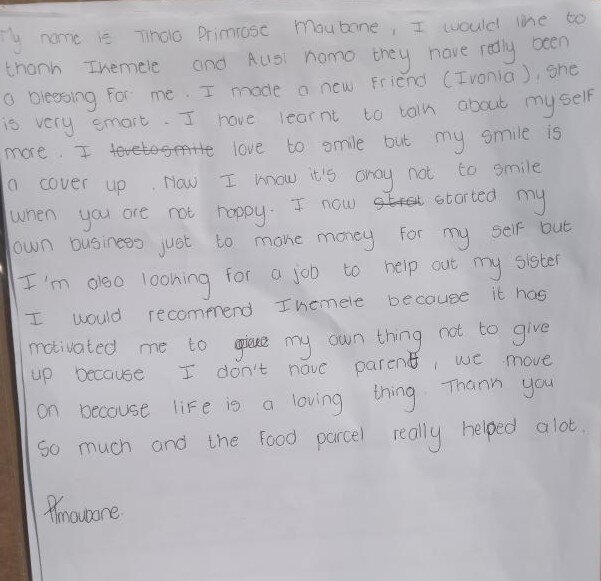 My name is Tlholo Primrose Maubane, I would like to
thank Ikemele and Ausi Kamo they have really been
a blessing for me. I made a new friend (Ivonia), she
is very smart. I have learnt to talk about myself
more. I lovetosmile love to smile but my smile is
a cover up. Now I know it's okay not to smile
when you are not happy. I now strat started my
own business just to make money for my self but
I'm also looking for a job to help out my sister
I would recommend Ikemele because it has
motivated me to my own thing not to give
up because I don't have parent, we move
on because life is a loving thing. Thank you
so much and the food parcel really helped alot.
Pmaubane.